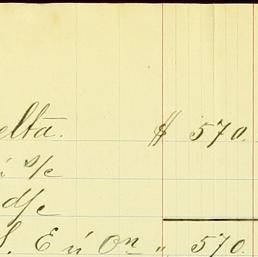 elta. $ 570.
ú s/c
d/c
S. E ú On „ 570.